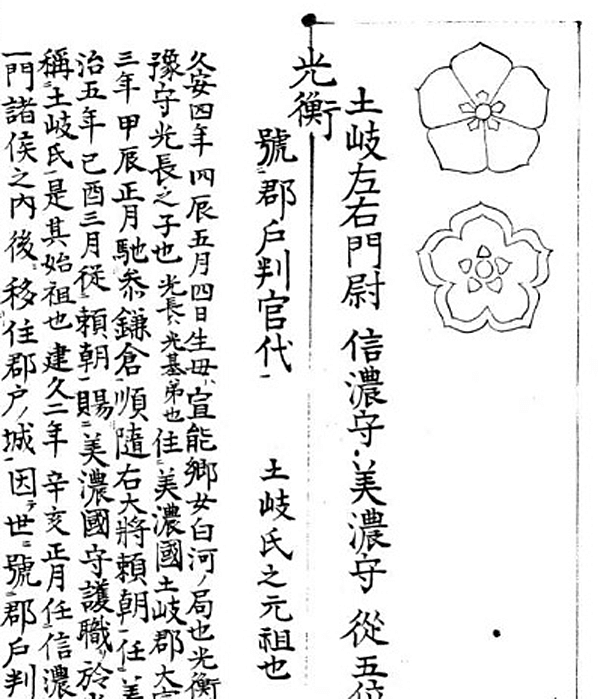 光衡
土岐左右門尉 信濃守・美濃守 從五位
號郡戸判官代 土岐氏之元祖也
久安四年四辰五月四日生母ハ宜能郷女白河ノ局也光衡
豫守光長之子也 光長ハ光基弟也 住美濃國土岐郡大
三年甲辰正月馳参鎌倉順隨右大將頼朝任美
治五年己酉三月從頼朝賜美濃國守護職於
稱土岐氏是其始祖也建久二年辛亥正月任信濃
一門諸侯之內後移住郡戸ノ城因テ世ニ號郡戸判